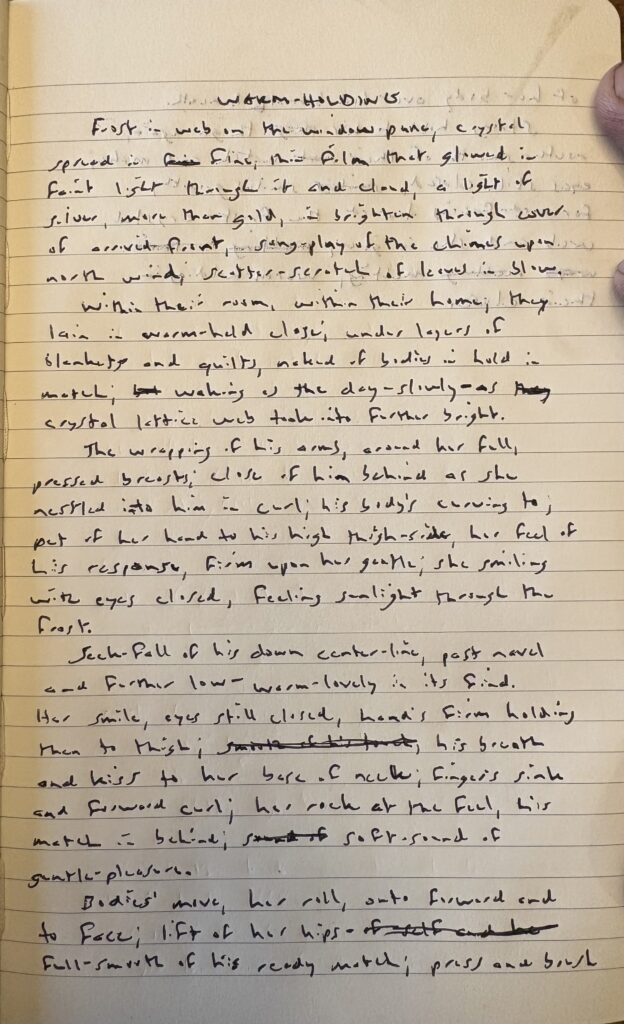 WARM-HOLDING
Frost in web on the window-pane, crystal
spread in fine, thin film that glowed in
faint light through it and cloud, a light of
silver, more than gold, in brighten through cover
of arrived front, song-play of the chimes upon
north wind, scatter-scratch of leaves in blow.
Within their room, within their home, they
lain in warm-held close, under layers of
blankets and quilts, naked of bodies in hold in
match, waking as the day-slowly-as
crystal lattice web took into further bright.
The wrapping of his arms, around her full,
pressed breasts; close of him behind as she
nestled into him in curl; his body's curving to;
put of her hand to his high thigh-side, her feel of
his response, firm upon her gentle; she smiling
with eyes closed, feeling sunlight through the
frost.
Seek-fall of his down center-line, past navel
and further low- warm-lovely in its find.
Her smile, eyes still closed, hand's firm holding
then to thigh; smooth of his touch, his breath
and kiss to her base of neck; finger's sink
and forward curl; her rock at the feel, his
match in behind; sound of soft-sound of
gentle-pleasure.
Bodies' move, her roll, onto forward and
to face; lift of her hips- of self and her
full-smooth of his ready match; press and brush